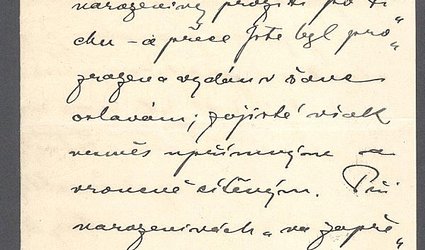 narozeniny prožíti po ti
chu – a přece jste byl pro„
zrazen a vydán v šanc
oslavám; zajisté však
vesměs upřímným a
vroucně cítěným. Při
narozeninách „na zapře„